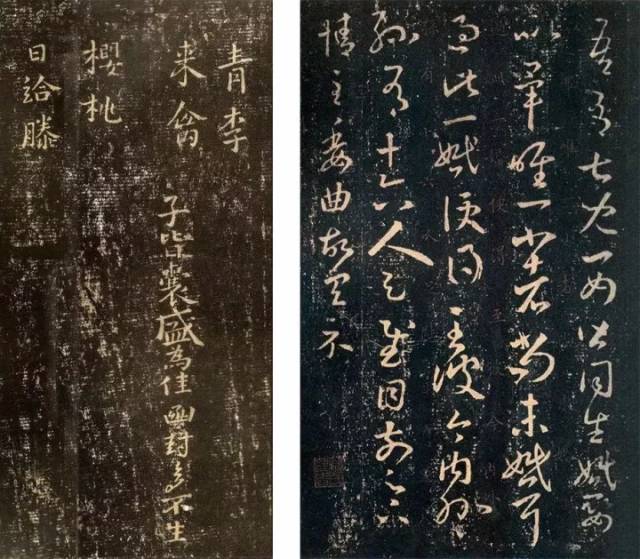 青李
来禽
櫻桃
日給滕
子皆囊盛為佳函封多不生
吾有七兒一女皆同生婚娶
以畢唯一小者尚未婚耳
過此一婚便得至彼今內外
孫有十六人足慰目前足下
情至委曲故具示